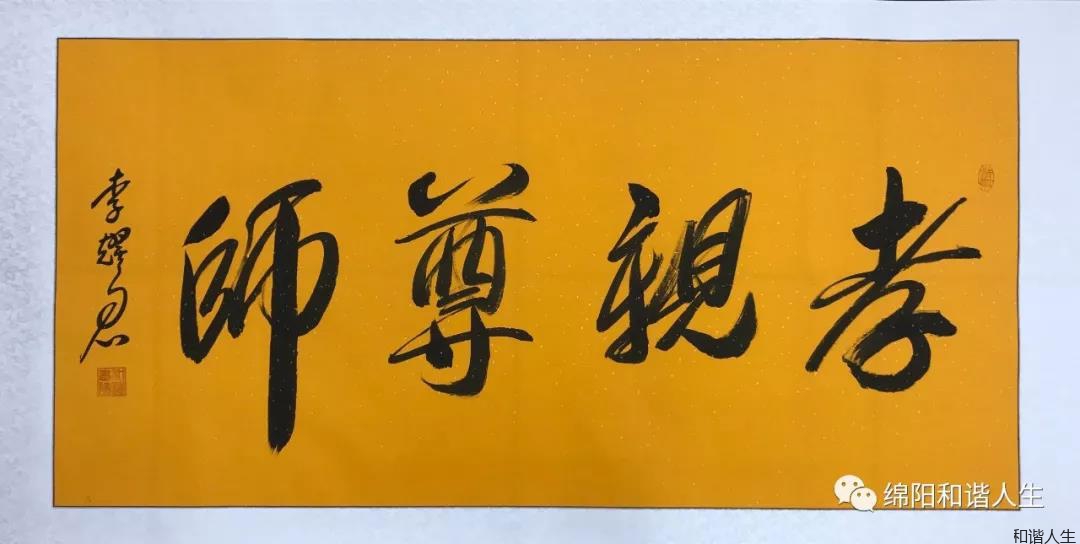 孝親尊師
李耀
绵阳和谐人生
和谐人生